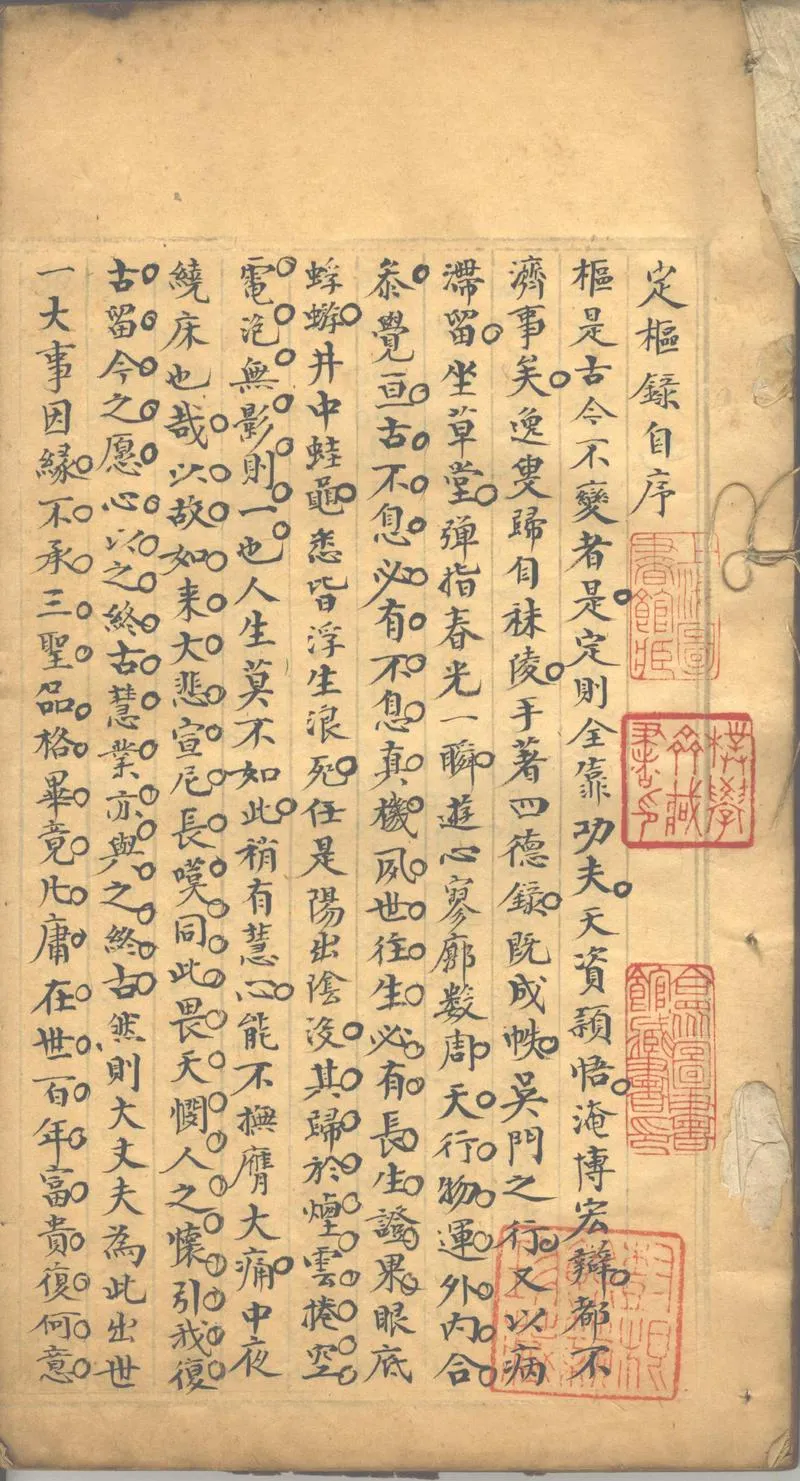 定樞錄自序
樞是古今不變者是定則全靠功夫天資穎悟淹博宏辯都不
濟事矣逸叟歸自秣陵手著四德錄既成帙吳門之行又以病
滯留坐草堂彈指春光一瞬遊心寥廓數周天行物運外内合
叅覺亘古不息必有不息真機夙世往生必有長生證果眼底
蜉蝣井中蛙黽悉皆浮生浪死任是陽出陰沒其歸於煙雲捲空
電泡無影則一也人生莫不如此稍有慧心能不撫膺大痛中夜
繞床也哉以故如来大悲宣尼長嘆同此畏天憫人之懷引我復
古留今之愿心以之終古慧業亦與之終古然則大丈夫為此出世
一大事因緣不承三聖品格畢竟凡庸在世百年富貴復何意
樸學齋藏書印
圖書館藏書印